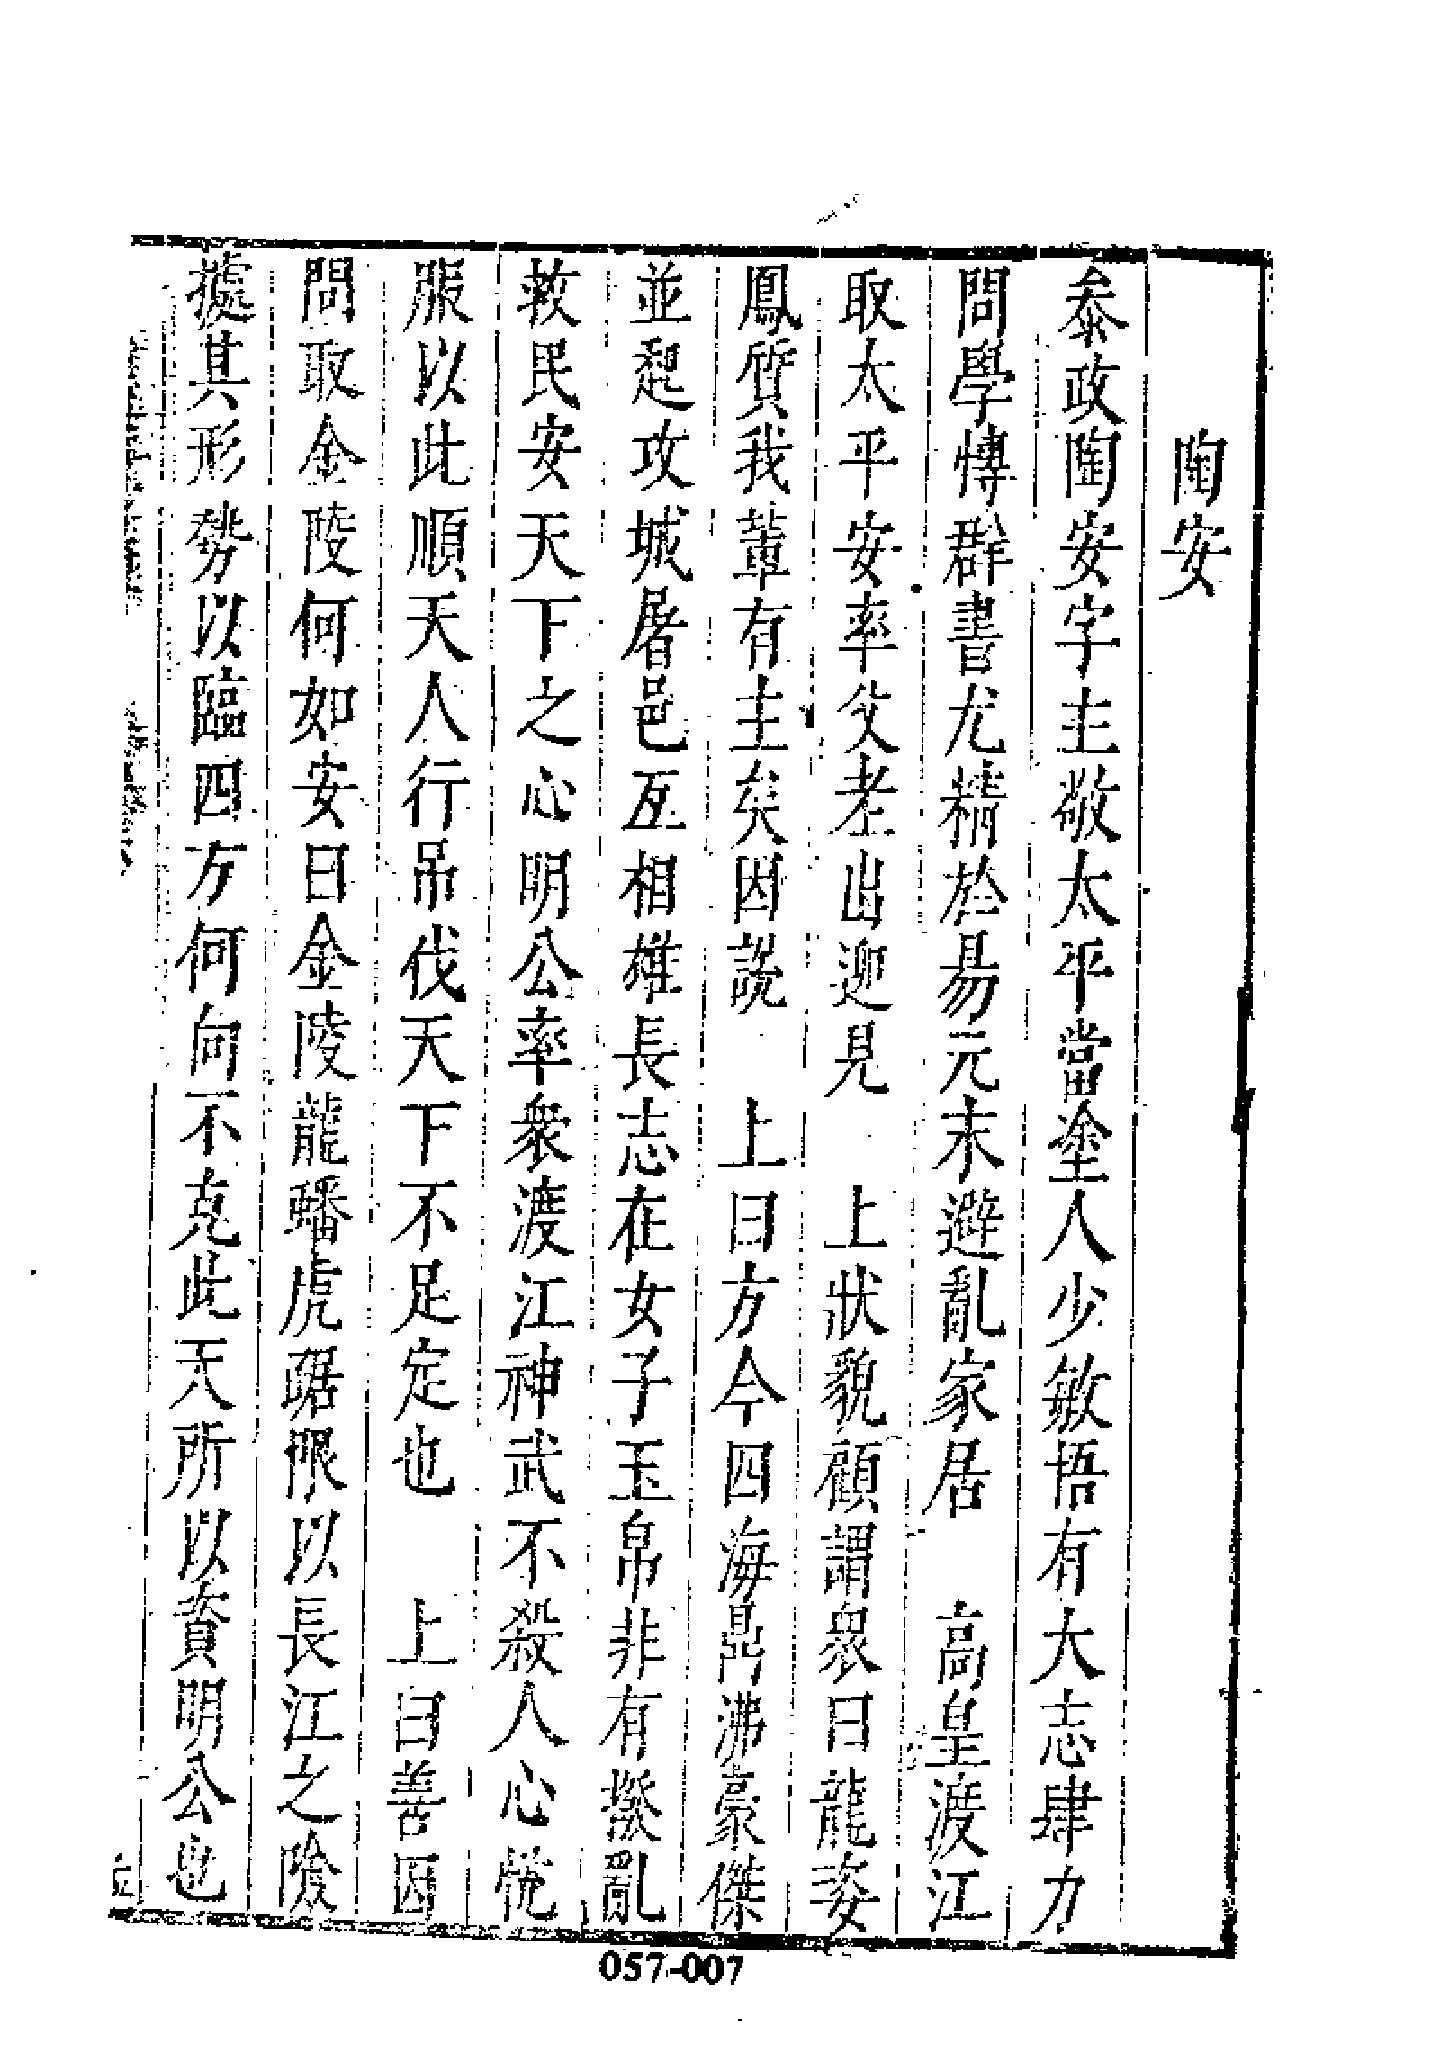 陶安
叅政陶安字主敬太平當塗人少敏悟有大志肆力
問學博群書尤精於易元末避亂家居　高皇渡江
取太平安率父老出迎見　上狀貌顧謂衆曰龍姿
鳳質我輩有主矣因說　上曰方今四海鼎沸豪傑
並起攻城屠邑互相雄長志在女子玉帛非有撥亂
救民安天下之心明公率衆渡江神武不殺人心悅
服以此順天人行吊伐天下不足定也　上曰善因
問取金陵何如安曰金陵龍蟠虎踞限以長江之險
據其形勢以臨四方何向不克此天所以資明公也
057-007